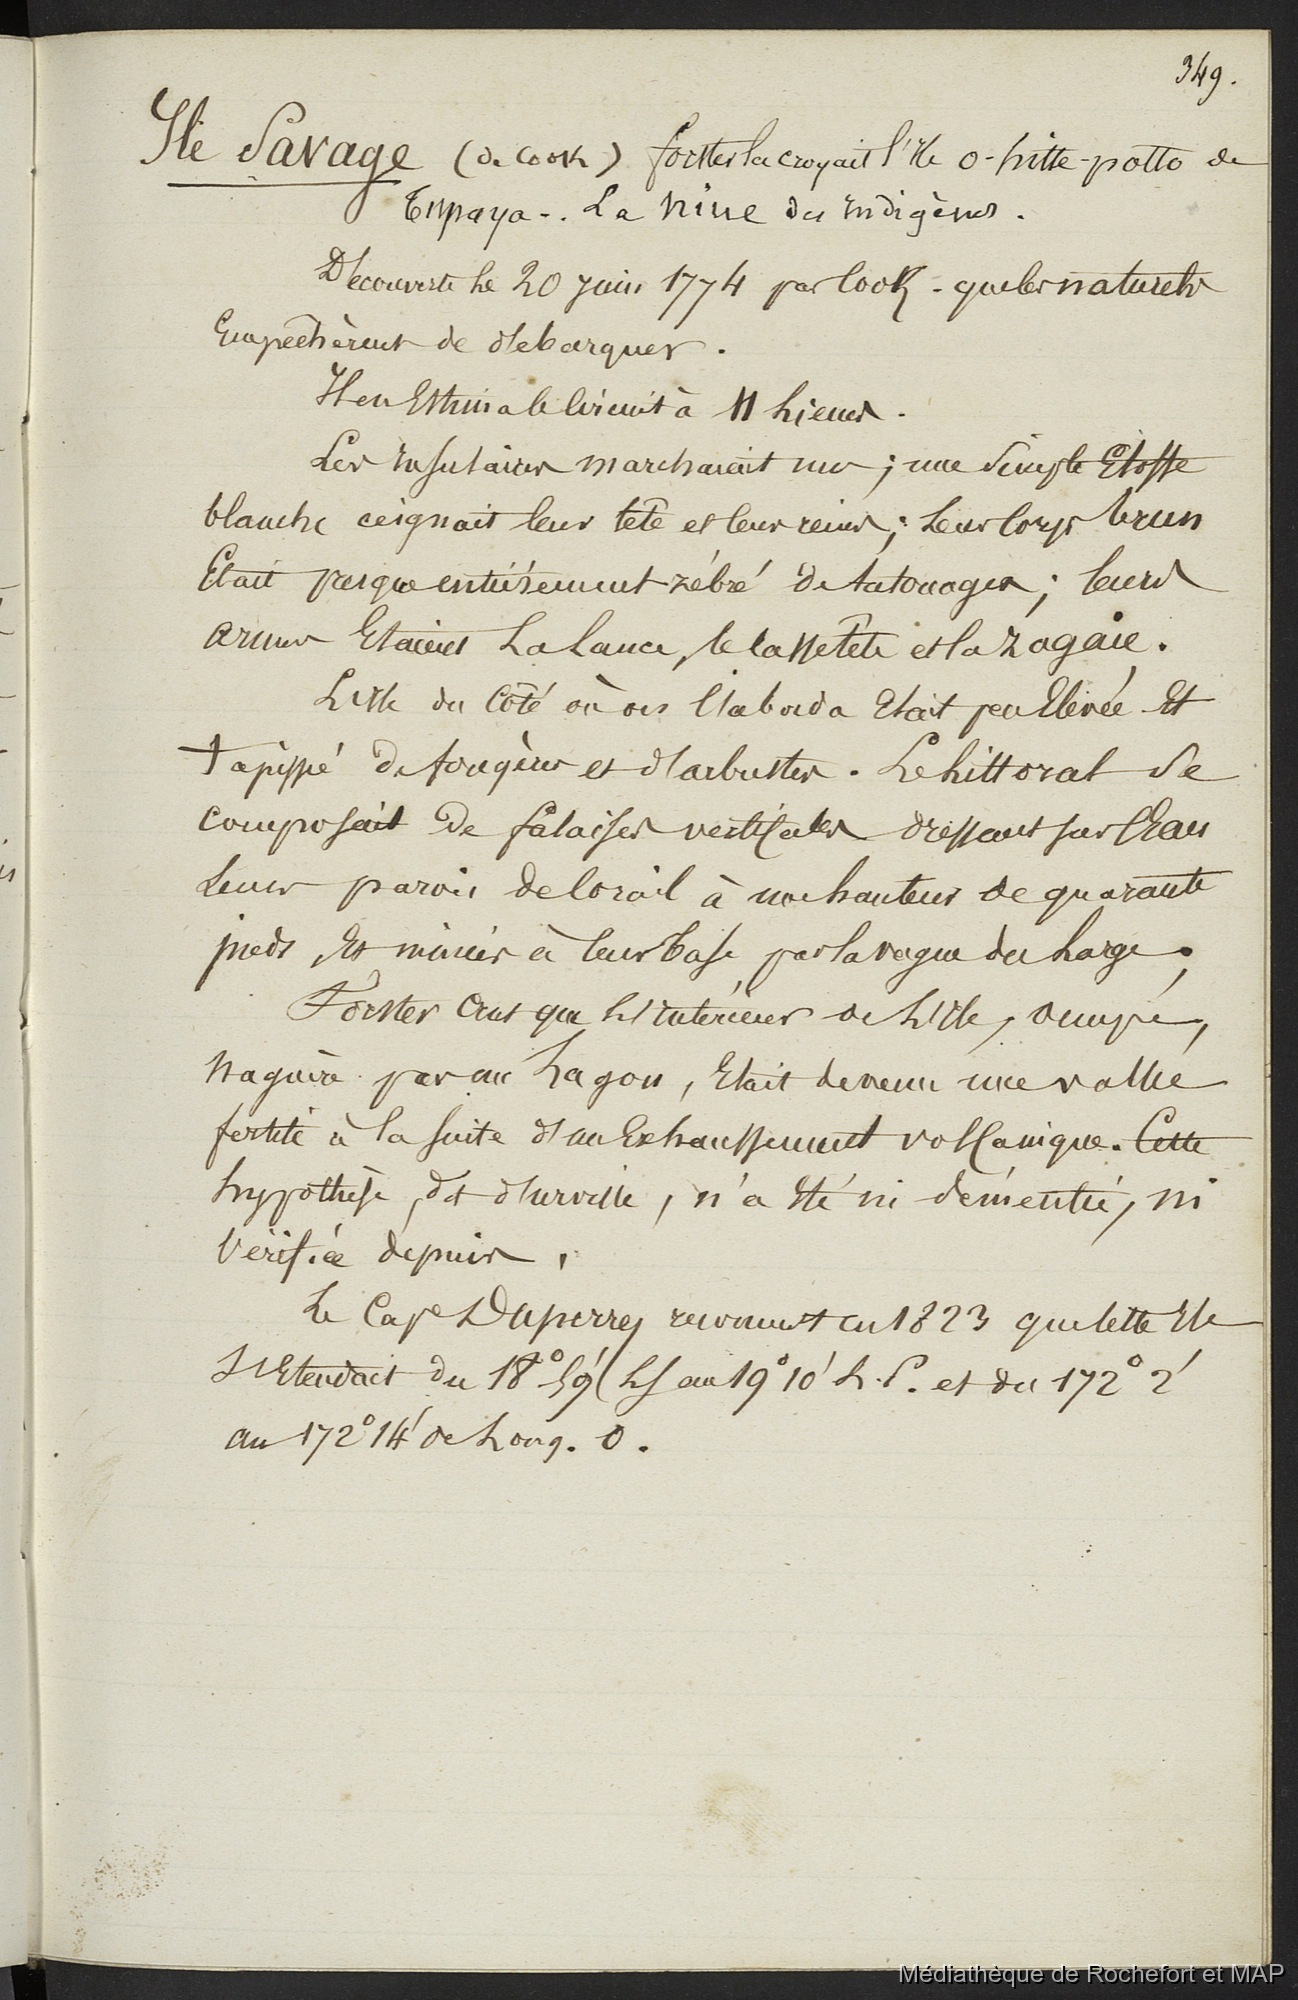 349.
Ile Savage (de Cook) forster la croyait l'Ile o-hitte-potto de
Tupaya-. La Niue des indigènes.
Découverte le 20 juin 1774 par Cook - que les naturels
Empêchèrent de débarquer.
Il en Estima le circuit à 11 lieues.
Les insulaires marchaient nus ; une simple Etoffe
blanche ceignait leur tête et leur reins ; Leur Corps brun
Etait presque entièrement zébré de tatouages ; leurs
armes Etaient La Lance, le Casse tête et la zagaie.
L'Ile du Côté où on l'aborda Etait peu Elevée Et
tapissé de fougères et d'arbustes. Le littoral se
composait de falaises verticales dressant sur l'Eau
Leurs parois de Corail à une hauteur de quarante
pieds, Et minées à leur base par la vague du Large.
Forster Crut que L'intérieur de L'Ile, occupé,
Naguère par un Lagon, Etait devenu une vallée
fertile à la suite d'un Exhaussement volcanique. Cette
hypothèse, dit d'urville, n'a Eté ni démentie, ni
Vérifiée depuis.
Le Cape Duperrey reconnut en 1823 que cette Ile
S'Etendait du 18° 59' LS au 19° 10' L.S. et du 172° 2'
au 172° 14' de Long. O.
Médiathèque de Rochefort et MAP